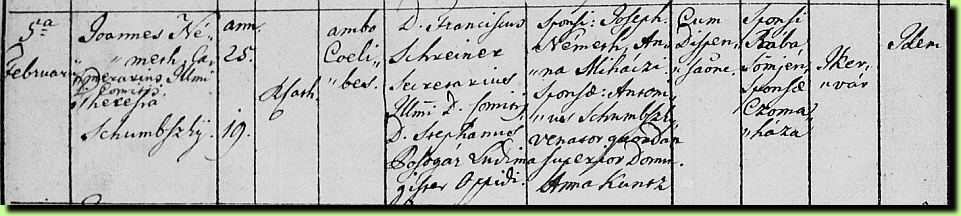 5a
Februar.
Joannes Né-
" meth, Ca-
merarius Illmi
D. Comitis.
Theresia
Schumbszky.
ann.
25.
19.
R. Cath.
ambo
Coeli-
" bes.
D. Franciscus
Schreiner
Secretarius
Illmi D. Comitis
D. Stephanus
Posogár Ludima
gister Oppidi.
Sponsi: Joseph.
Németh, An-
na Miháczi
Sponsæ: Antoni-
" us Schumbszki
venator quondam
superior Domin.
Anna Kuntz
Cum
Dispen-
" saone.
Sponsi
Rába
Somjen,
Sponsæ
Czoma-
" háza
Iker-
" vár
Idem